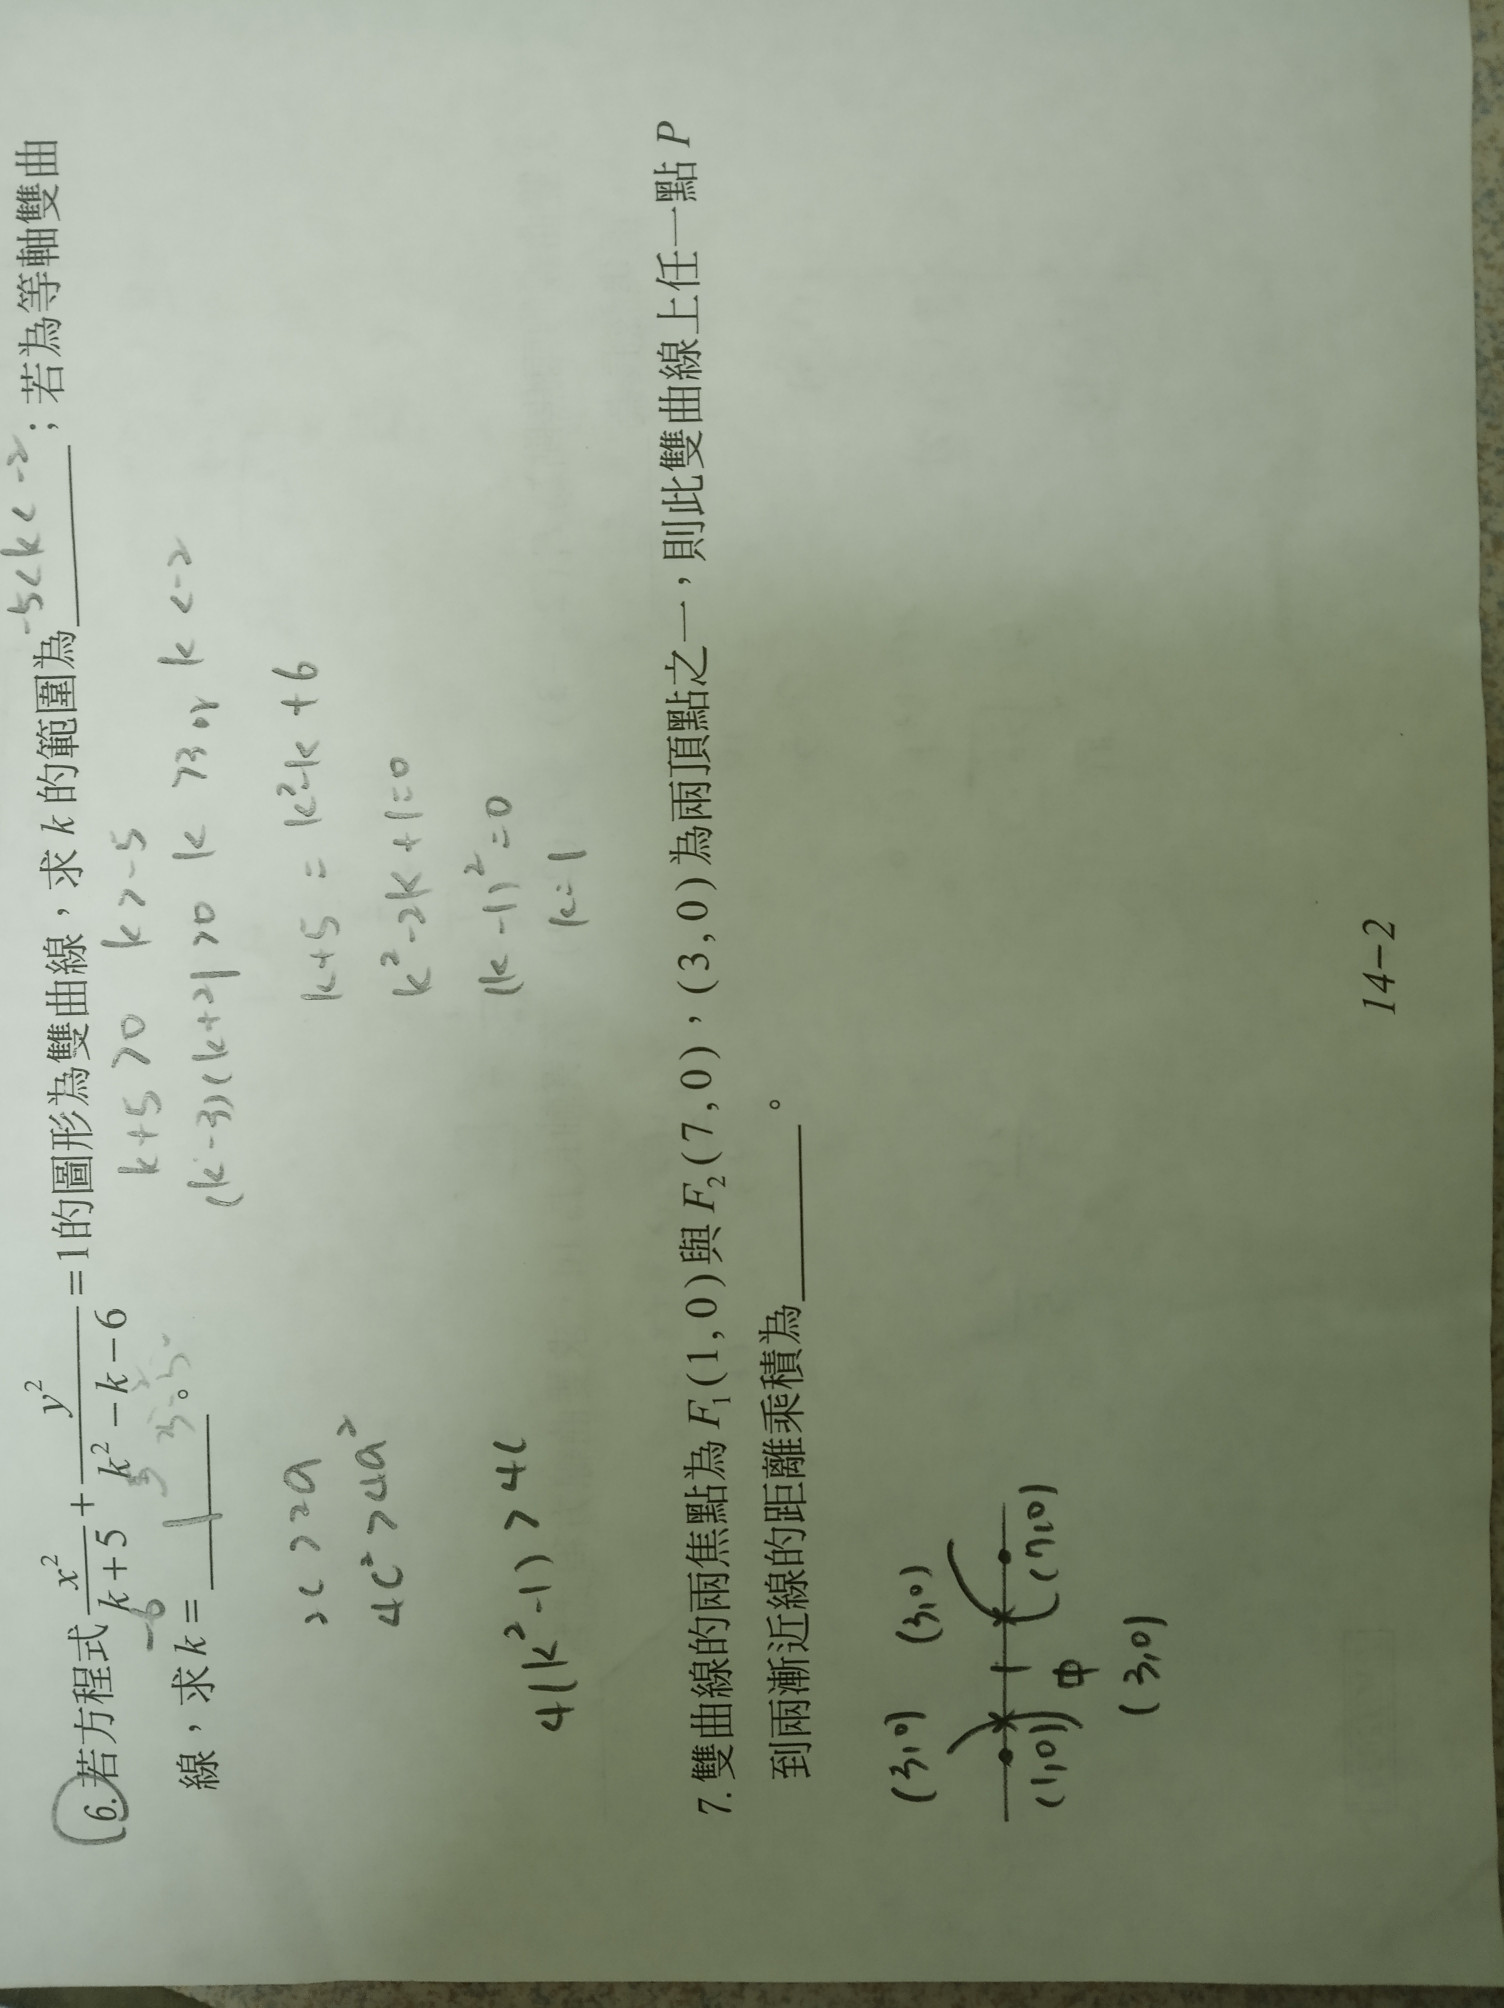 6.若方程式 x²/(k+5) + y²/(k²-k-6) = 1的圖形為雙曲線，求k的範圍為 -5<k<-2 ；若為等軸雙曲
線，求k= 1 。
-6
k+5>0 k>-5
(k-3)(k+2)>0 k>3 or k<-2
k+5 = k²-k+6
k²-2k+1=0
(k-1)²=0
k=1
2c>2a
4c²>4a²
4(k²-1)>4
7.雙曲線的兩焦點為F₁(1,0)與F₂(7,0)，(3,0)為兩頂點之一，則此雙曲線上任一點P
到兩漸近線的距離乘積為______。
(3,0) (3,0)
(1,0) 中 (7,0)
(3,0)
14-2